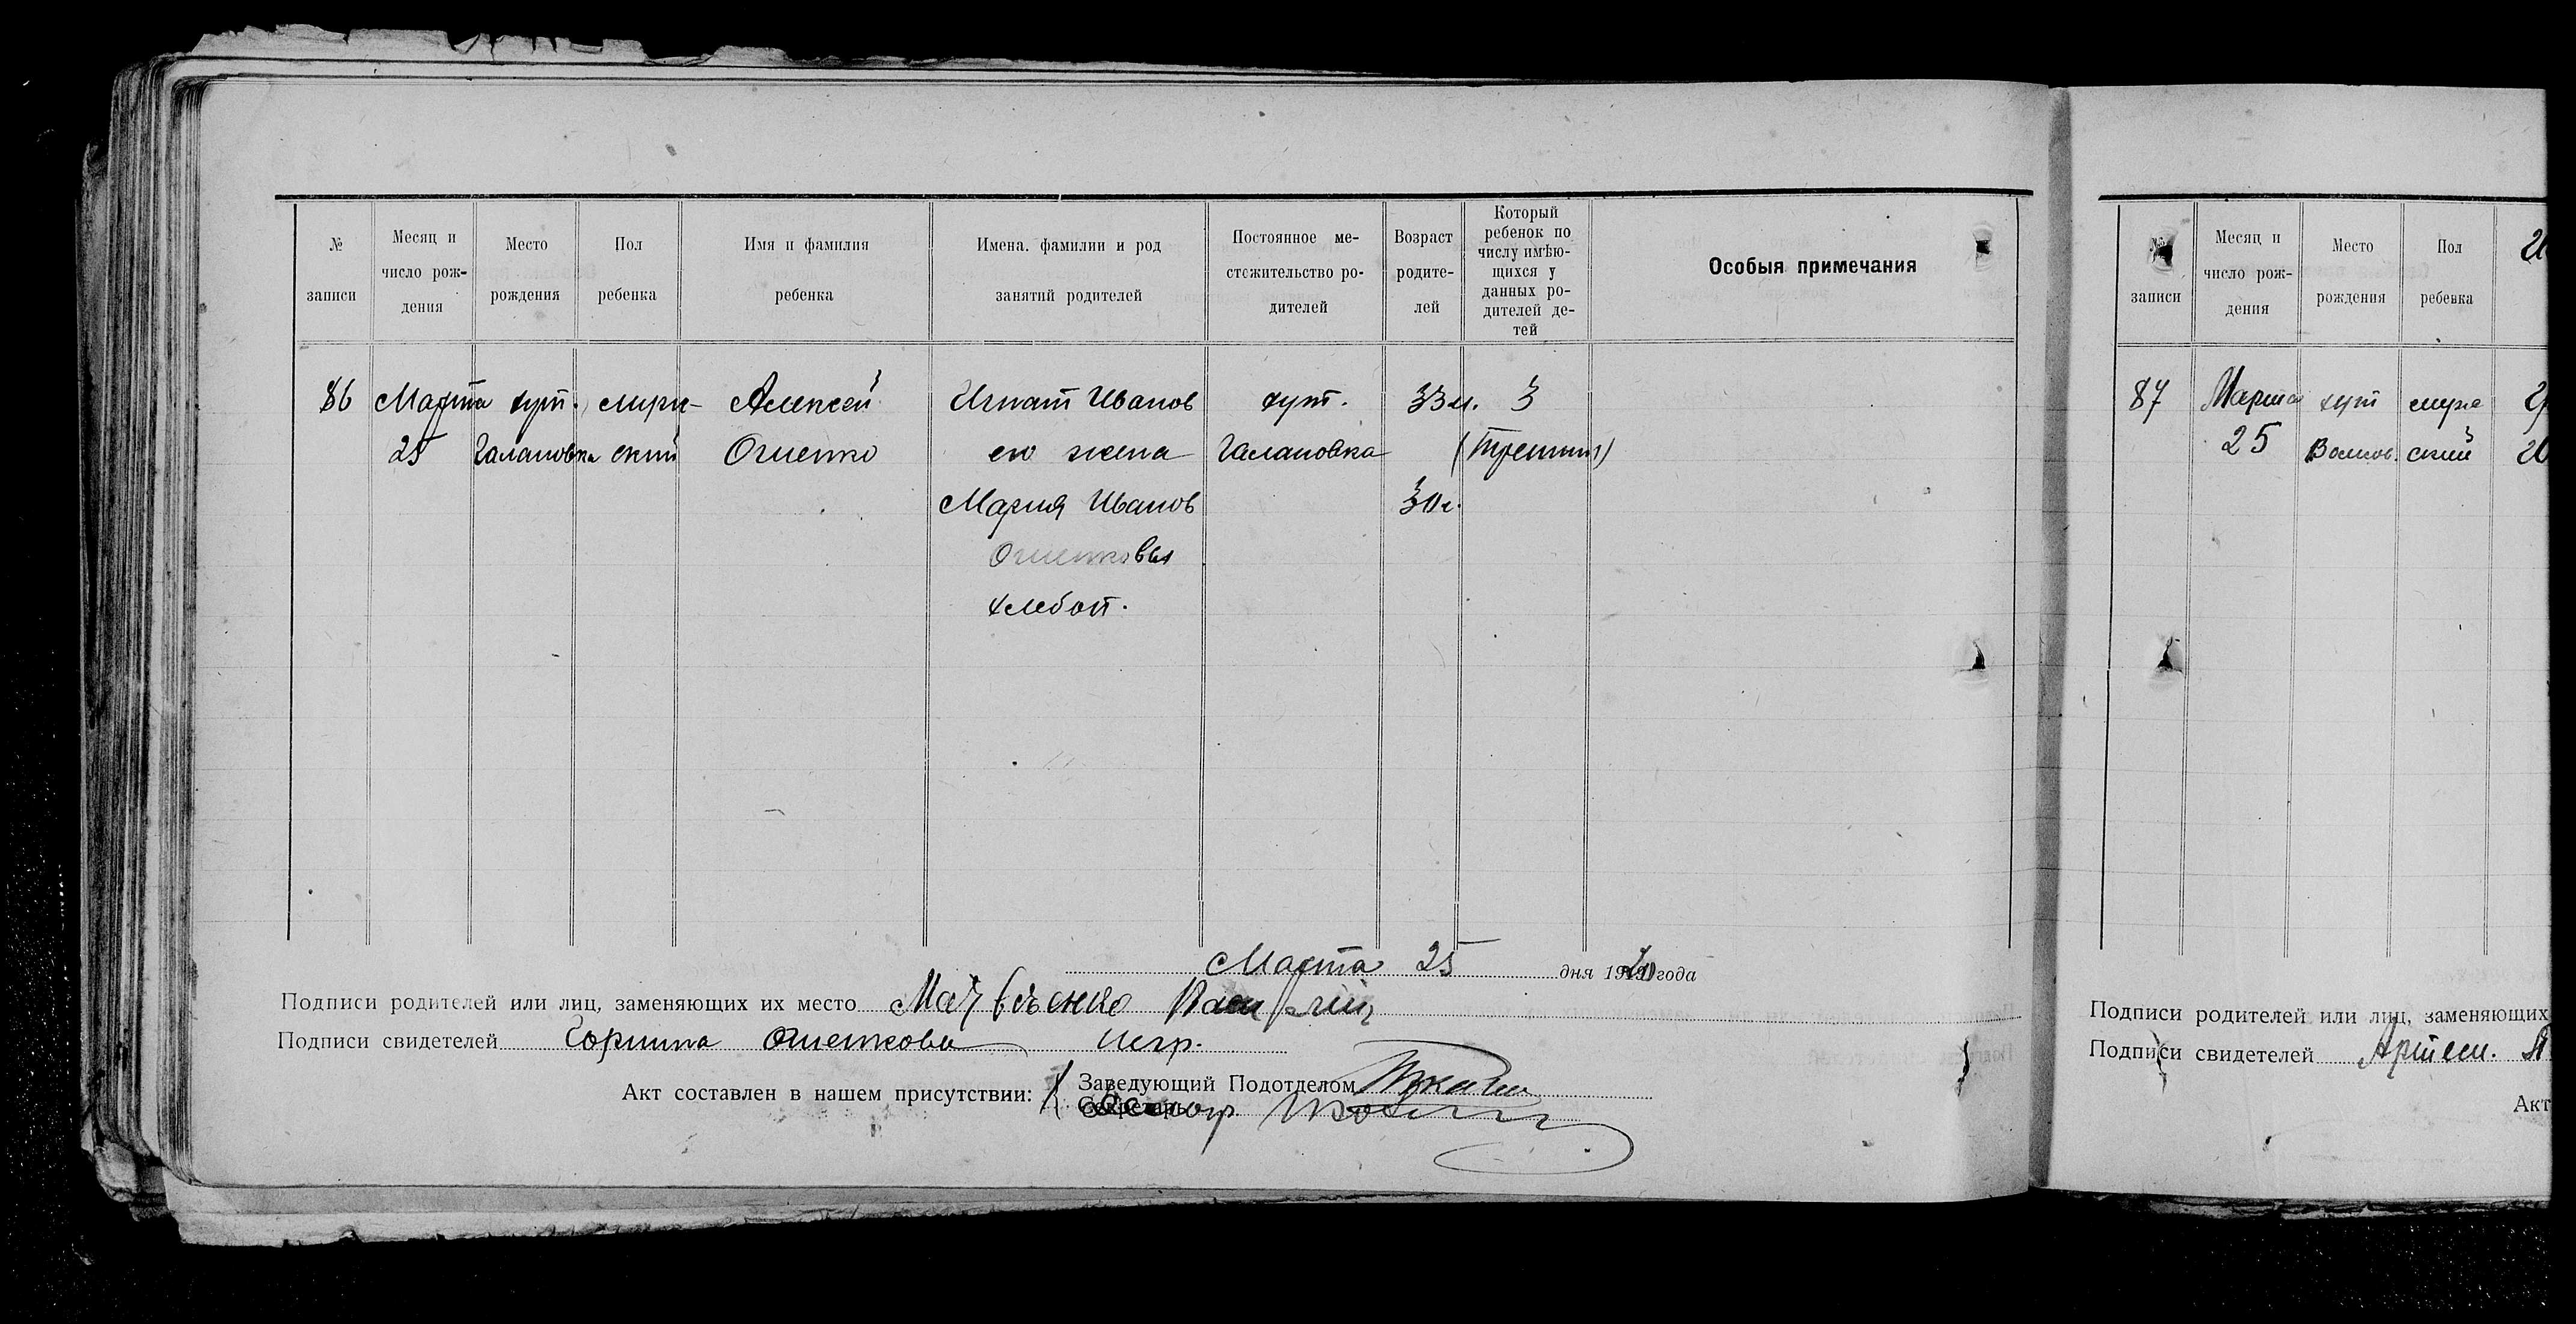 № записи
Месяц и число рождения
Место рождения
Пол ребенка
Имя и фамилия ребенка
Имена. фамилии и род занятий родителей
Постоянное местожительство родителей
Возраст родителей
Который ребенок по числу имѣющихся у данных родителей детей
Особыя примечания
86 Марта хут. мужс- Алексей Игнат Иванов хут. 33 л. 3
25 Галановка ский Ошетко его жена Галановка (третий)
Мария Иванов 30 г.
Ошетковы
хлебоп.
Марта 25 дня 1920 года
Подписи родителей или лиц, заменяющих их место Матвѣенко
Подписи свидетелей Ошеткова негр.
Акт составлен в нашем присутствии:
Заведующий Подотделом
Секретарь
№ записи
Месяц и число рождения
Место рождения
Пол ребенка
87 Марта хут муже
25 Волков. ский
Подписи родителей или лиц, заменяющих
Подписи свидетелей Артем.
Акт